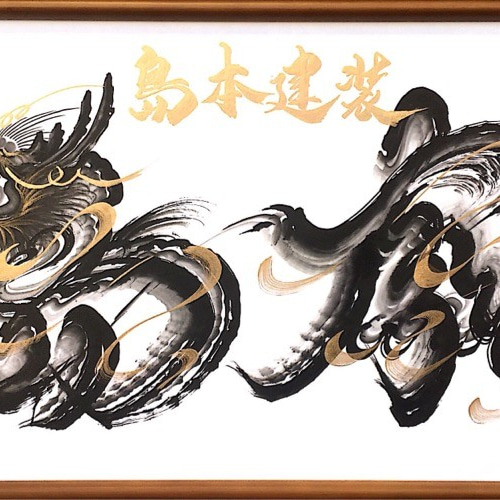 島本建装